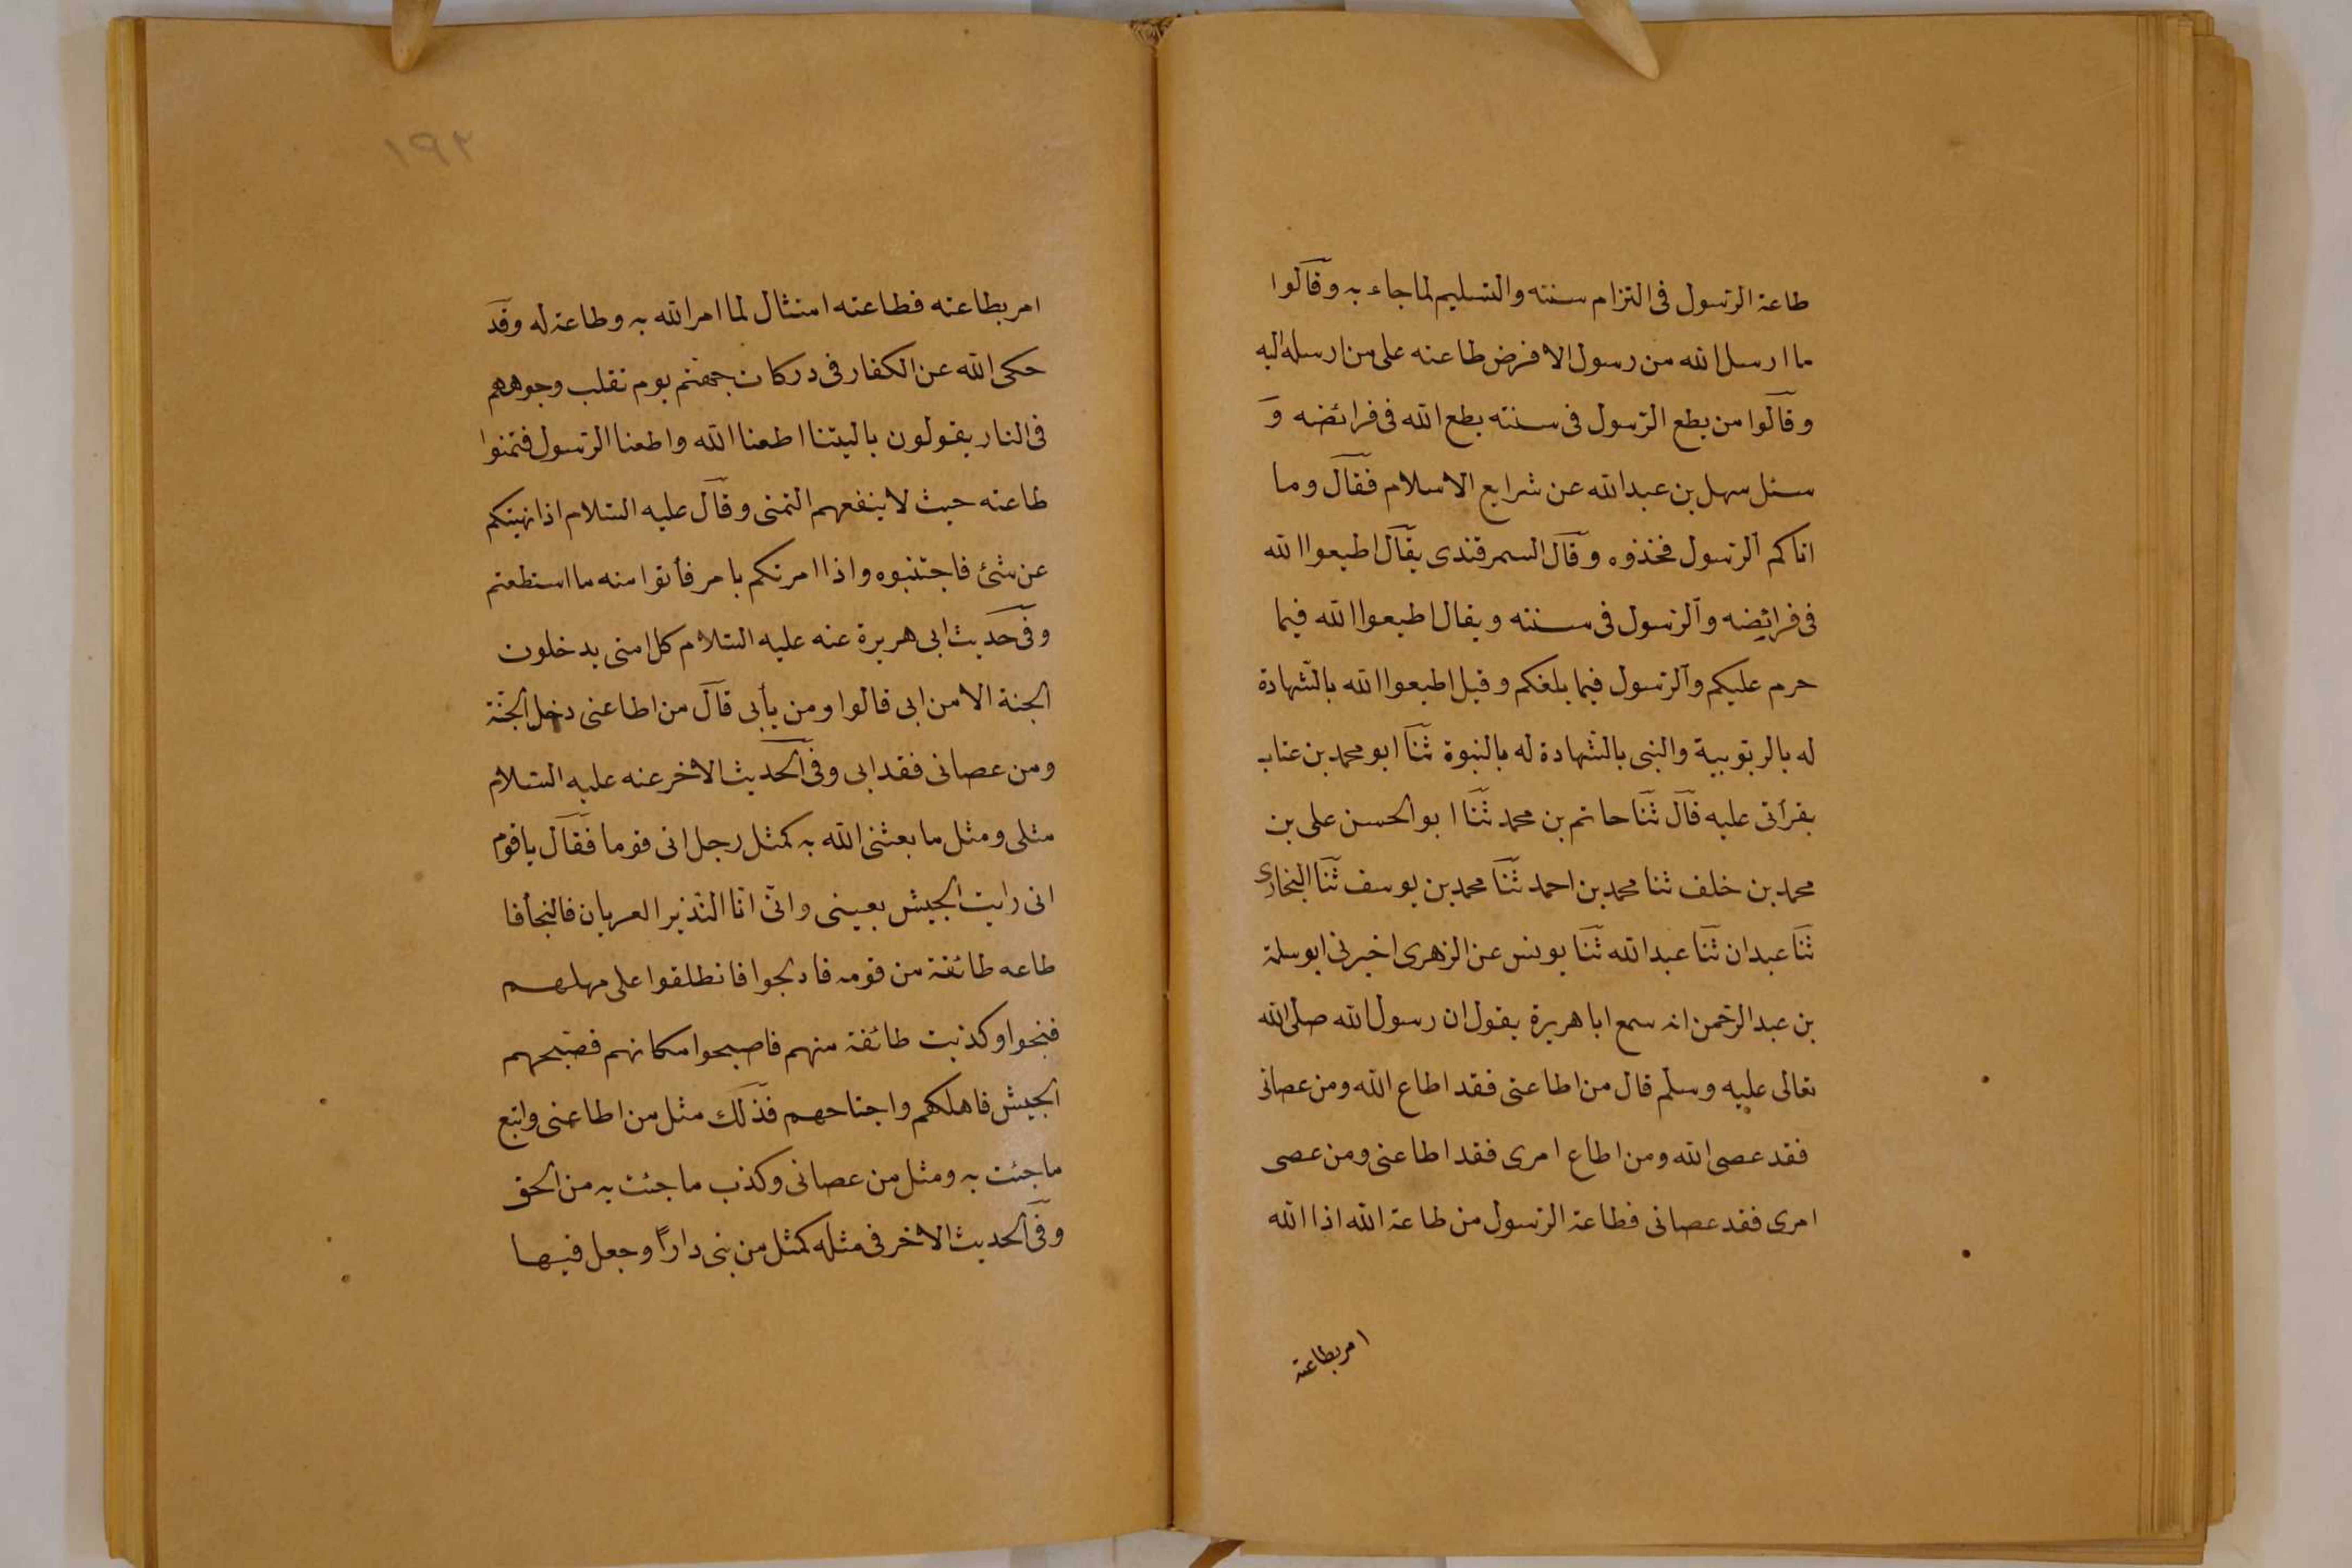 طاعة الرسول فى التزام سنته والتسليم لما جاء به وقالوا
ما ارسل الله من رسول الا فرض طاعته على من ارسله اليه
وقالوا من يطع الرسول فى سنته يطع الله فى فرائضه و
سئل سهل بن عبد الله عن شرايع الاسلام فقال وما
اتاكم الرسول فخذوه وقال السمرقندى يقال اطيعوا الله
فى فرائضه والرسول فى سنته ويقال اطيعوا الله فيما
حرم عليكم والرسول فيما بلغكم وقيل اطيعوا الله بالشهادة
له بالربوبية والنبى بالشهادة له بالنبوة ثنا ابو محمد بن عتاب
بقرأتى عليه قال ثنا حاتم بن محمد ثنا ابو الحسن على بن
محمد بن خلف ثنا محمد بن احمد ثنا محمد بن يوسف ثنا البخارى
ثنا عبدان ثنا عبد الله ثنا يونس عن الزهرى اخبرنى ابو سلمة
بن عبد الرحمن انه سمع ابا هريرة يقول ان رسول الله صلى الله
تعالى عليه وسلم قال من اطاعنى فقد اطاع الله ومن عصانى
فقد عصى الله ومن اطاع امرى فقد اطاعنى ومن عصى
امرى فقد عصانى فطاعة الرسول من طاعة الله اذا الله
امر بطاعته
١٩٢
امر بطاعته فطاعته امتثال لما امر الله به وطاعة له وقد
حكى الله عن الكفار فى دركات جهنم يوم تقلب وجوههم
فى النار يقولون ياليتنا اطعنا الله واطعنا الرسول فتمنوا
طاعته حيث لا ينفعهم التمنى وقال عليه السلام اذا نهيتكم
عن شئ فاجتنبوه واذا امرتكم بامر فأتوا منه ما استطعتم
وفى حديث ابى هريرة عنه عليه السلام كل امتى يدخلون
الجنة الا من ابى قالوا ومن يأبى قال من اطاعنى دخل الجنة
ومن عصانى فقد ابى وفى الحديث الاخر عنه عليه السلام
مثلى ومثل ما بعثنى الله به كمثل رجل اتى قوما فقال ياقوم
انى رايت الجيش بعينى وانى انا النذير العريان فالنجأفا
طاعه طائفة من قومه فادلجوا فانطلقوا على مهلهم
فنجوا وكذبت طائفة منهم فاصبحوا مكانهم فصبحهم
الجيش فاهلكهم واجتاحهم فذلك مثل من اطاعنى واتبع
ما جئت به ومثل من عصانى وكذب ما جئت به من الحق
وفى الحديث الاخر فى مثله كمثل من بنى دارا وجعل فيها